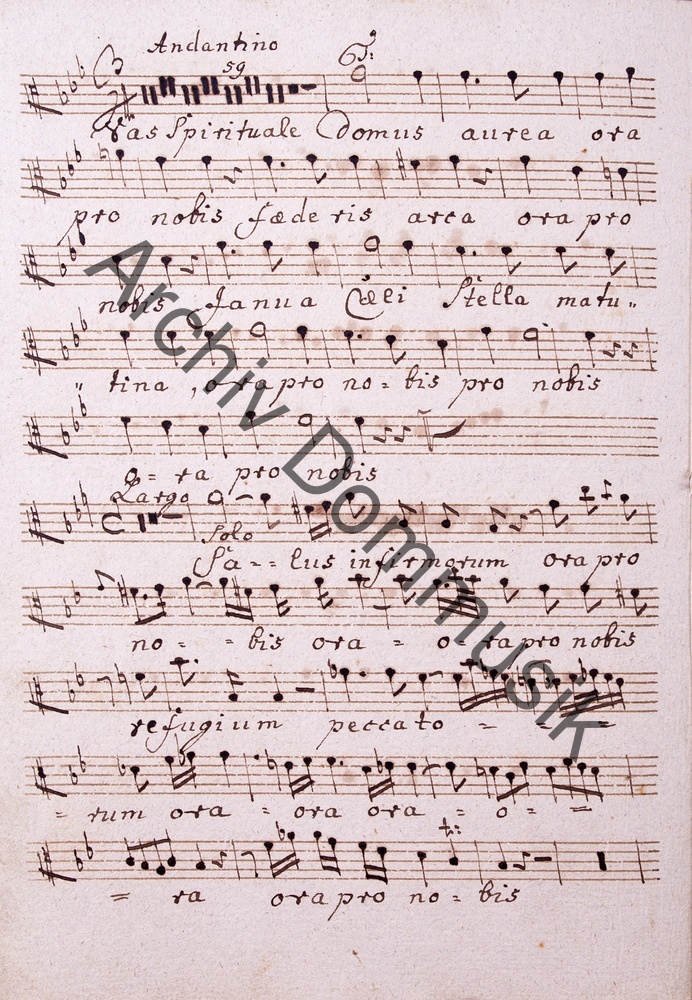 Andantino
59 T:
Vas Spirituale Domus aurea ora
pro nobis fæderis arca ora pro
nobis Janua Cæli Stella matu„
„ tina , ora pro no = bis pro nobis
o = ra pro nobis
Largo
Solo
Sa - - lus infirmorum ora pro
no - - bis ora = o - ra pro nobis
refugium peccato = = =
= rum ora = ora ora = o - =
= ra ora pro no = bis
Archiv Dommusik